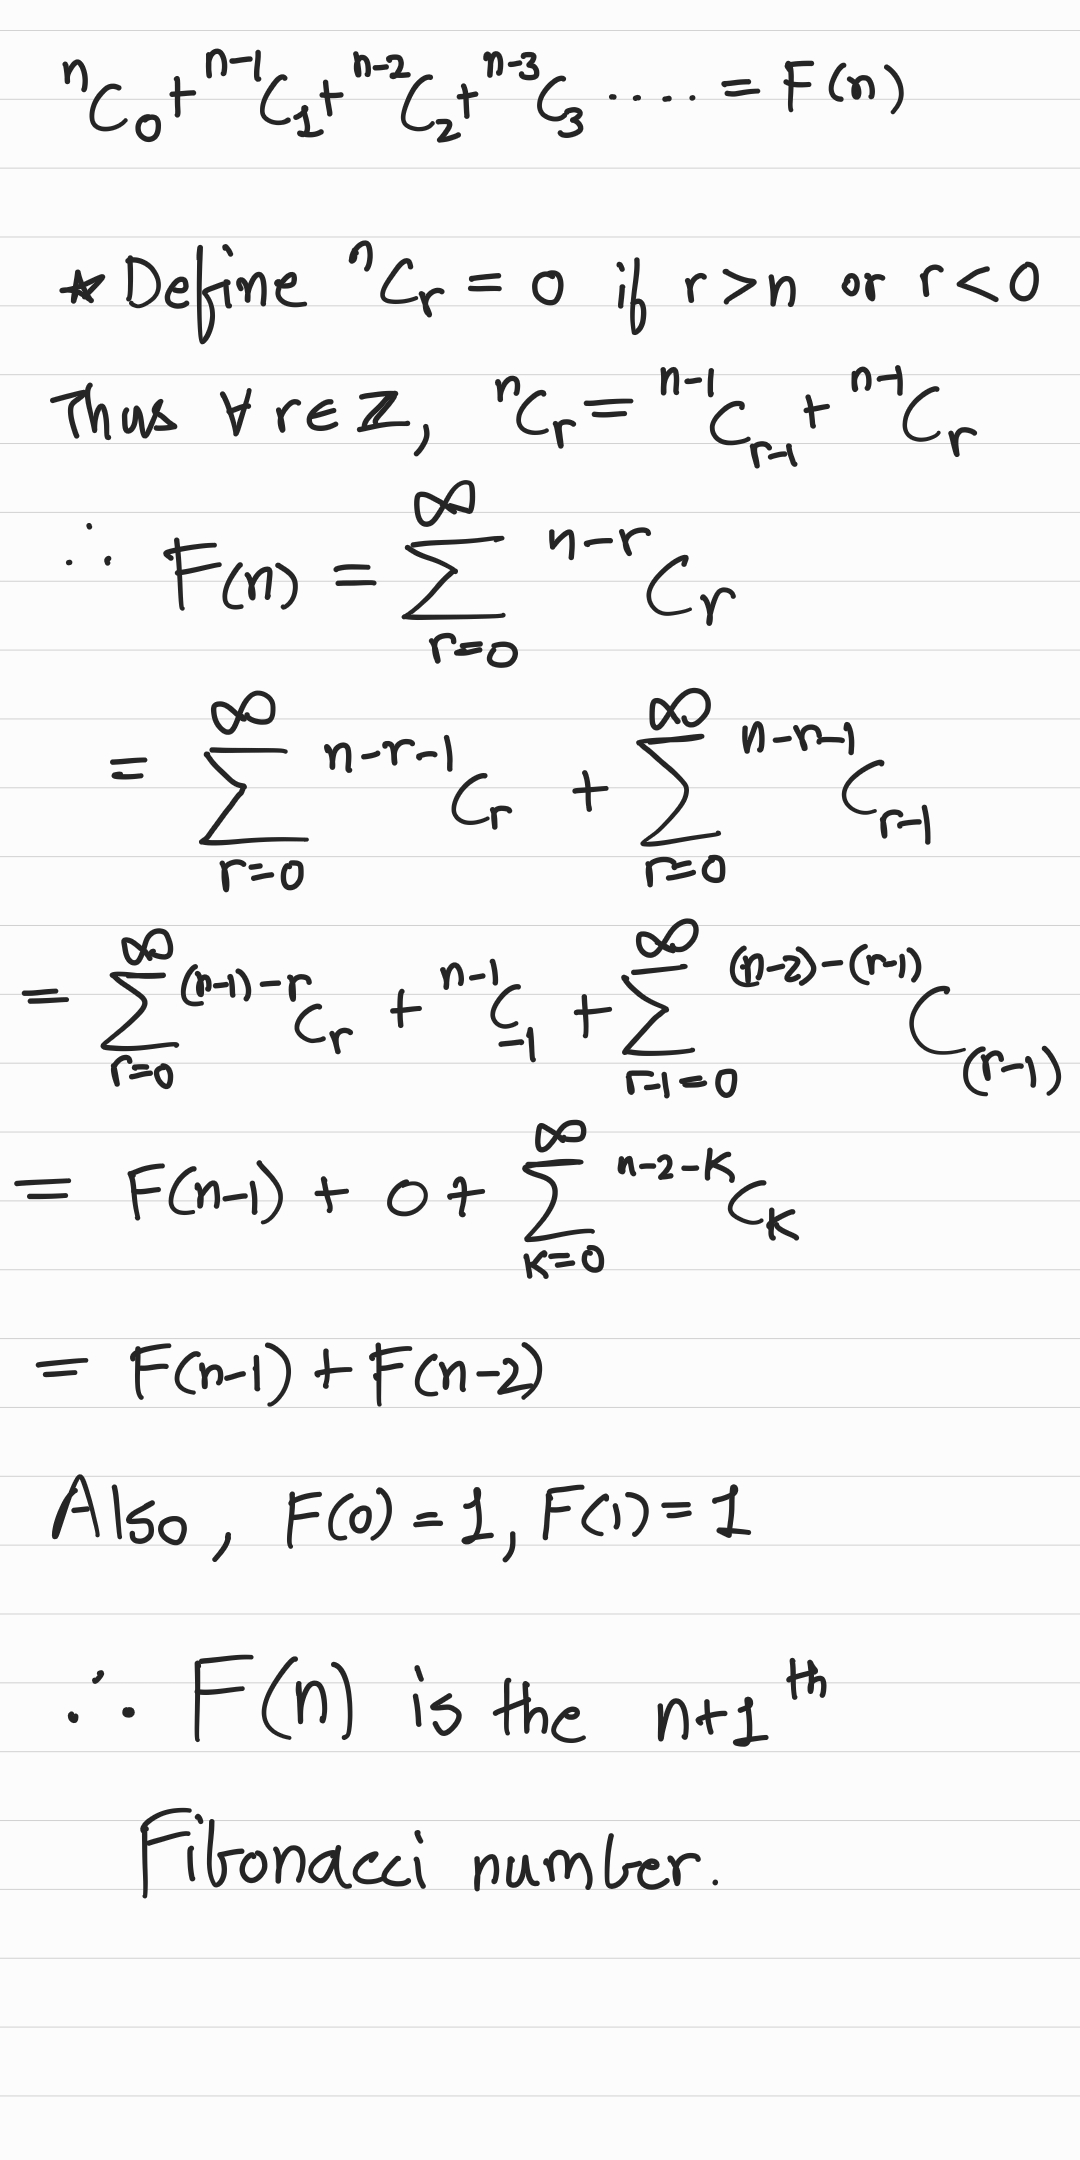 ⁿC₀ + ⁿ⁻¹C₁ + ⁿ⁻²C₂ + ⁿ⁻³C₃ ..... = F(n)
★ Define ⁿCᵣ = 0 if r > n or r < 0
Thus ∀ r ∈ ℤ, ⁿCᵣ = ⁿ⁻¹Cᵣ₋₁ + ⁿ⁻¹Cᵣ
∴ F(n) = ∑_{r=0}^{∞} ^{n-r}C_{r}
= ∑_{r=0}^{∞} ^{n-r-1}C_{r} + ∑_{r=0}^{∞} ^{n-r-1}C_{r-1}
= ∑_{r=0}^{∞} ^{(n-1)-r}C_{r} + ^{n-1}C_{-1} + ∑_{r-1=0}^{∞} ^{(n-2)-(r-1)}C_{(r-1)}
= F(n-1) + 0 + ∑_{K=0}^{∞} ^{n-2-K}C_{K}
= F(n-1) + F(n-2)
Also, F(0) = 1, F(1) = 1
∴ F(n) is the n+1ᵗʰ
Fibonacci number.